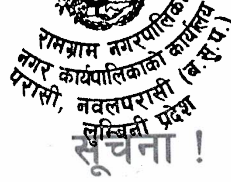 रामग्राम नगरपालिका
नगर कार्यपालिकाको कार्यालय
परासी, नवलपरासी (ब.सु.प.)
लुम्बिनी प्रदेश
सूचना !